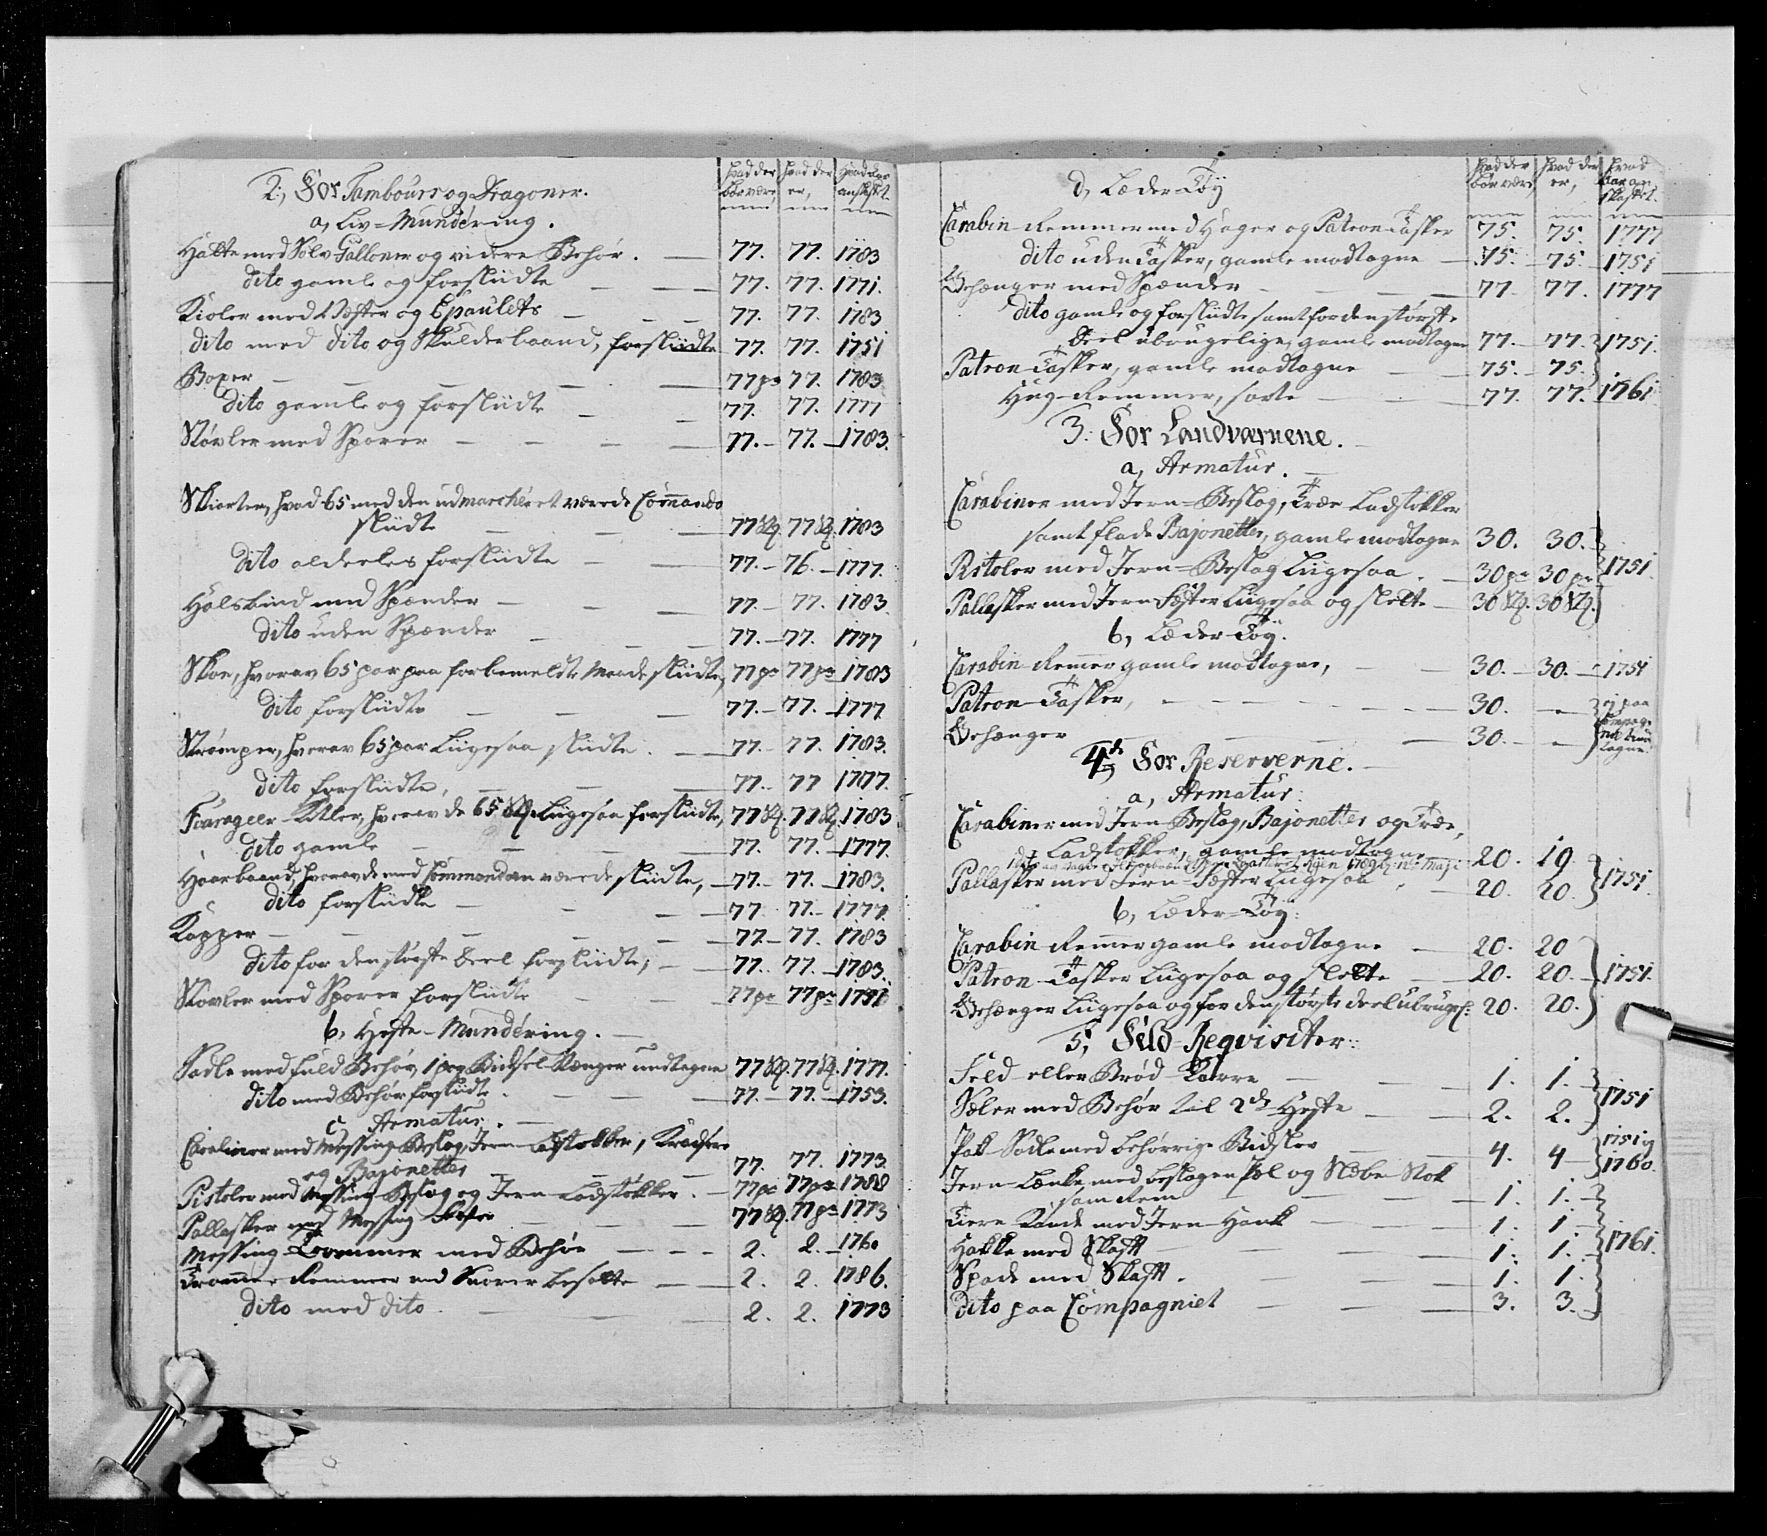 2, For Tambours og Dragoner.
hvad der bør være, hvad der er, hvad Aar anskaffet
a, Liv=Mundéring.
Hatte med Sølv Galloner og videre Behør. 77. 77. 1783
dito gamle og forsliidte 77. 77. 1771.
Kioler med Vester og Epaulets 77. 77. 1783
dito med dito og Skulderbaand, forsliidte 77. 77. 1751
Boxer 77 pr 77. 1783
dito gamle og forsliidte 77. 77. 1777
Støvler med Sporer 77. 77. 1783.
Skiorter, hvad 65 med den udmarcheret værede Comando
sliidte 77 Stk. 77 Stk. 1783
dito alderles forsliidte 77. 76. 1777.
Halsbind med Spænder 77. 77. 1783.
dito uden Spænder 77. 77. 1777
Skoe, hvorav 65 par paa forbemeldte Maade sliidte, 77 pr 77 pr 1783
dito forsliidte 77. 77. 1777
Strømper, hvorav 65 par Liigesaa sliidte. 77. 77. 1783.
dito forsliidte, 77. 77 1777.
Fourageer Kitler, hvorav de 65 Stk Liigesaa forsliidte, 77 Stk. 77 Stk. 1783
dito gamle 77. 77. 1777.
Haarbaand, hvorav de med Commandoen værede sliidte, 77. 77. 1783.
dito forsliidte 77 77. 1777.
Kapper 77. 77. 1783
dito for den største Deel forsliidte, 77. 77. 1783.
Støvler med Sporer forsliidte 77 pr 77 pr 1751
b, Heste-Mundéring.
Sadle med fuld Behør, 1 par Bidsel Stænger undtagen 77 Stk. 77 Stk. 1777.
dito med Behør forsliidt. 77. 77. 1753.
c, Armatur.
Carabiner med Messing Beslag, Jern Ladstokker, Kradsere
og Bajonetter 77. 77. 1773.
Pistoler med Messing Beslag og Jern Ladstokker. 77 pr 77 pr 1788
Pallasker med Messing Fæste 77 Stk. 77 pr 1773
Messing Trommer med Behør 2. 2. 1760
Tromme Remmer med Snorer besatte 2. 2. 1786.
dito med dito. 2. 2. 1773
d, Læder Tøy
hvad der bør være, hvad der er, hvad Aar anskaffet.
Carabin Remmer med Hager og Patron Tasker 75. 75. 1777
dito uden Tasker, gamle modtagne 75. 75. 1751
Gehænger med Spænder 77 77. 1777
dito gamle og forsliidte samt for den største
Deel ubrugelige, gamle modtagne 77. 77. 1751.
Patron Tasker, gamle modtagne 75. 75.
Hug-Remmer, sorte 77. 77. 1761
3. For Landværnene.
a, Armatur.
Carabiner med Jern=Beslag, Træe Ladstokker
samt flade Bajonetter, gamle modtagne 30. 30.
Pistoler med Jern=Beslag Liigesaa. 30 pr 30 pr 1751.
Pallasker med Jern Fæster Liigesaa og slette 30 Stk. 30 Stk.
b, Læder Tøy.
Carabin Remer gamle modtagne, 30. 30. 1751
Patron Tasker, 30. - ej paa
Gehænger 30. - Compagniet modtagne.
4de For Reserverne.
a, Armatur:
Carabiner med Jern Beslag, Bajonetter og Træe,
Ladstokker, gamle modtagne 20. 19.
Pallasker med Jern=Fæster Liigesaa 20. 20. 1751.
b, Læder=Tøy:
Carabin Remer gamle modtagne 20. 20
Patron Tasker Liigesaa og slette 20. 20. 1751.
Gehænger Liigesaa og for den største deel ubrugel: 20. 20.
5, Feld-Reqvisiter:
Feld eller Brød Karre 1. 1.
Sæler med Behør til 2de Heste 2. 2. 1751
Pak Sadle med behørrige Bidsler 4. 4 1751 og 1760.
Jern Lænke med beslagen Pæl og Nebe Stok
sam Rem 1. 1.
Tiere Kande med Jern Hank 1. 1.
Hakke med Skaft 1. 1. 1761.
Spade med Skaft. 1. 1.
dito paa Compagniet 3. 3.